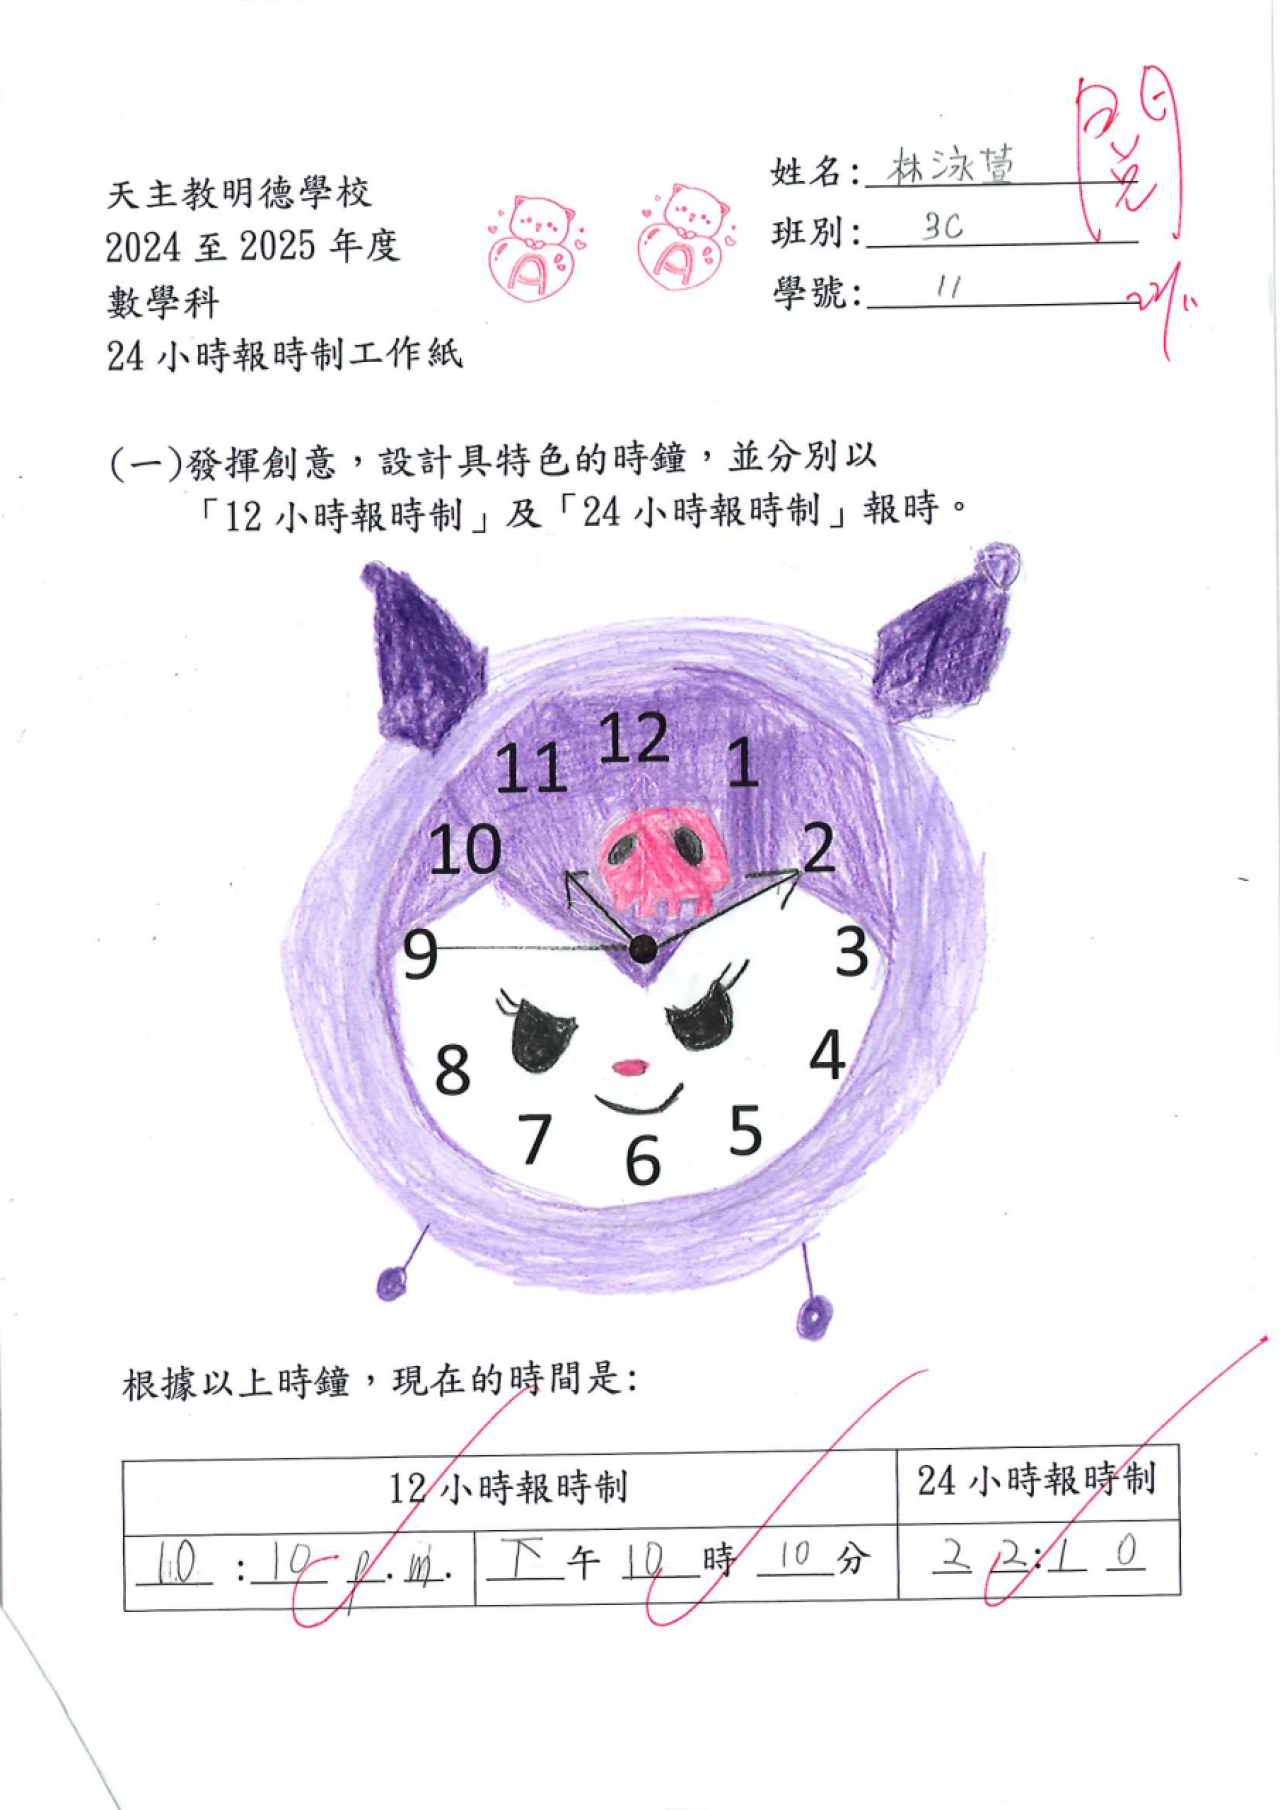 天主教明德學校
2024 至 2025 年度
數學科
24 小時報時制工作紙
A A
姓名: 林泳萱
班別: 3C
學號: 11
閱
22/11
(一)發揮創意，設計具特色的時鐘，並分別以
「12 小時報時制」及「24 小時報時制」報時。
12
11 1
10 2
9 3
8 4
7 5
6
根據以上時鐘，現在的時間是:
12 小時報時制 24 小時報時制
10 : 10 p.m. 下午 10 時 10 分 22:10